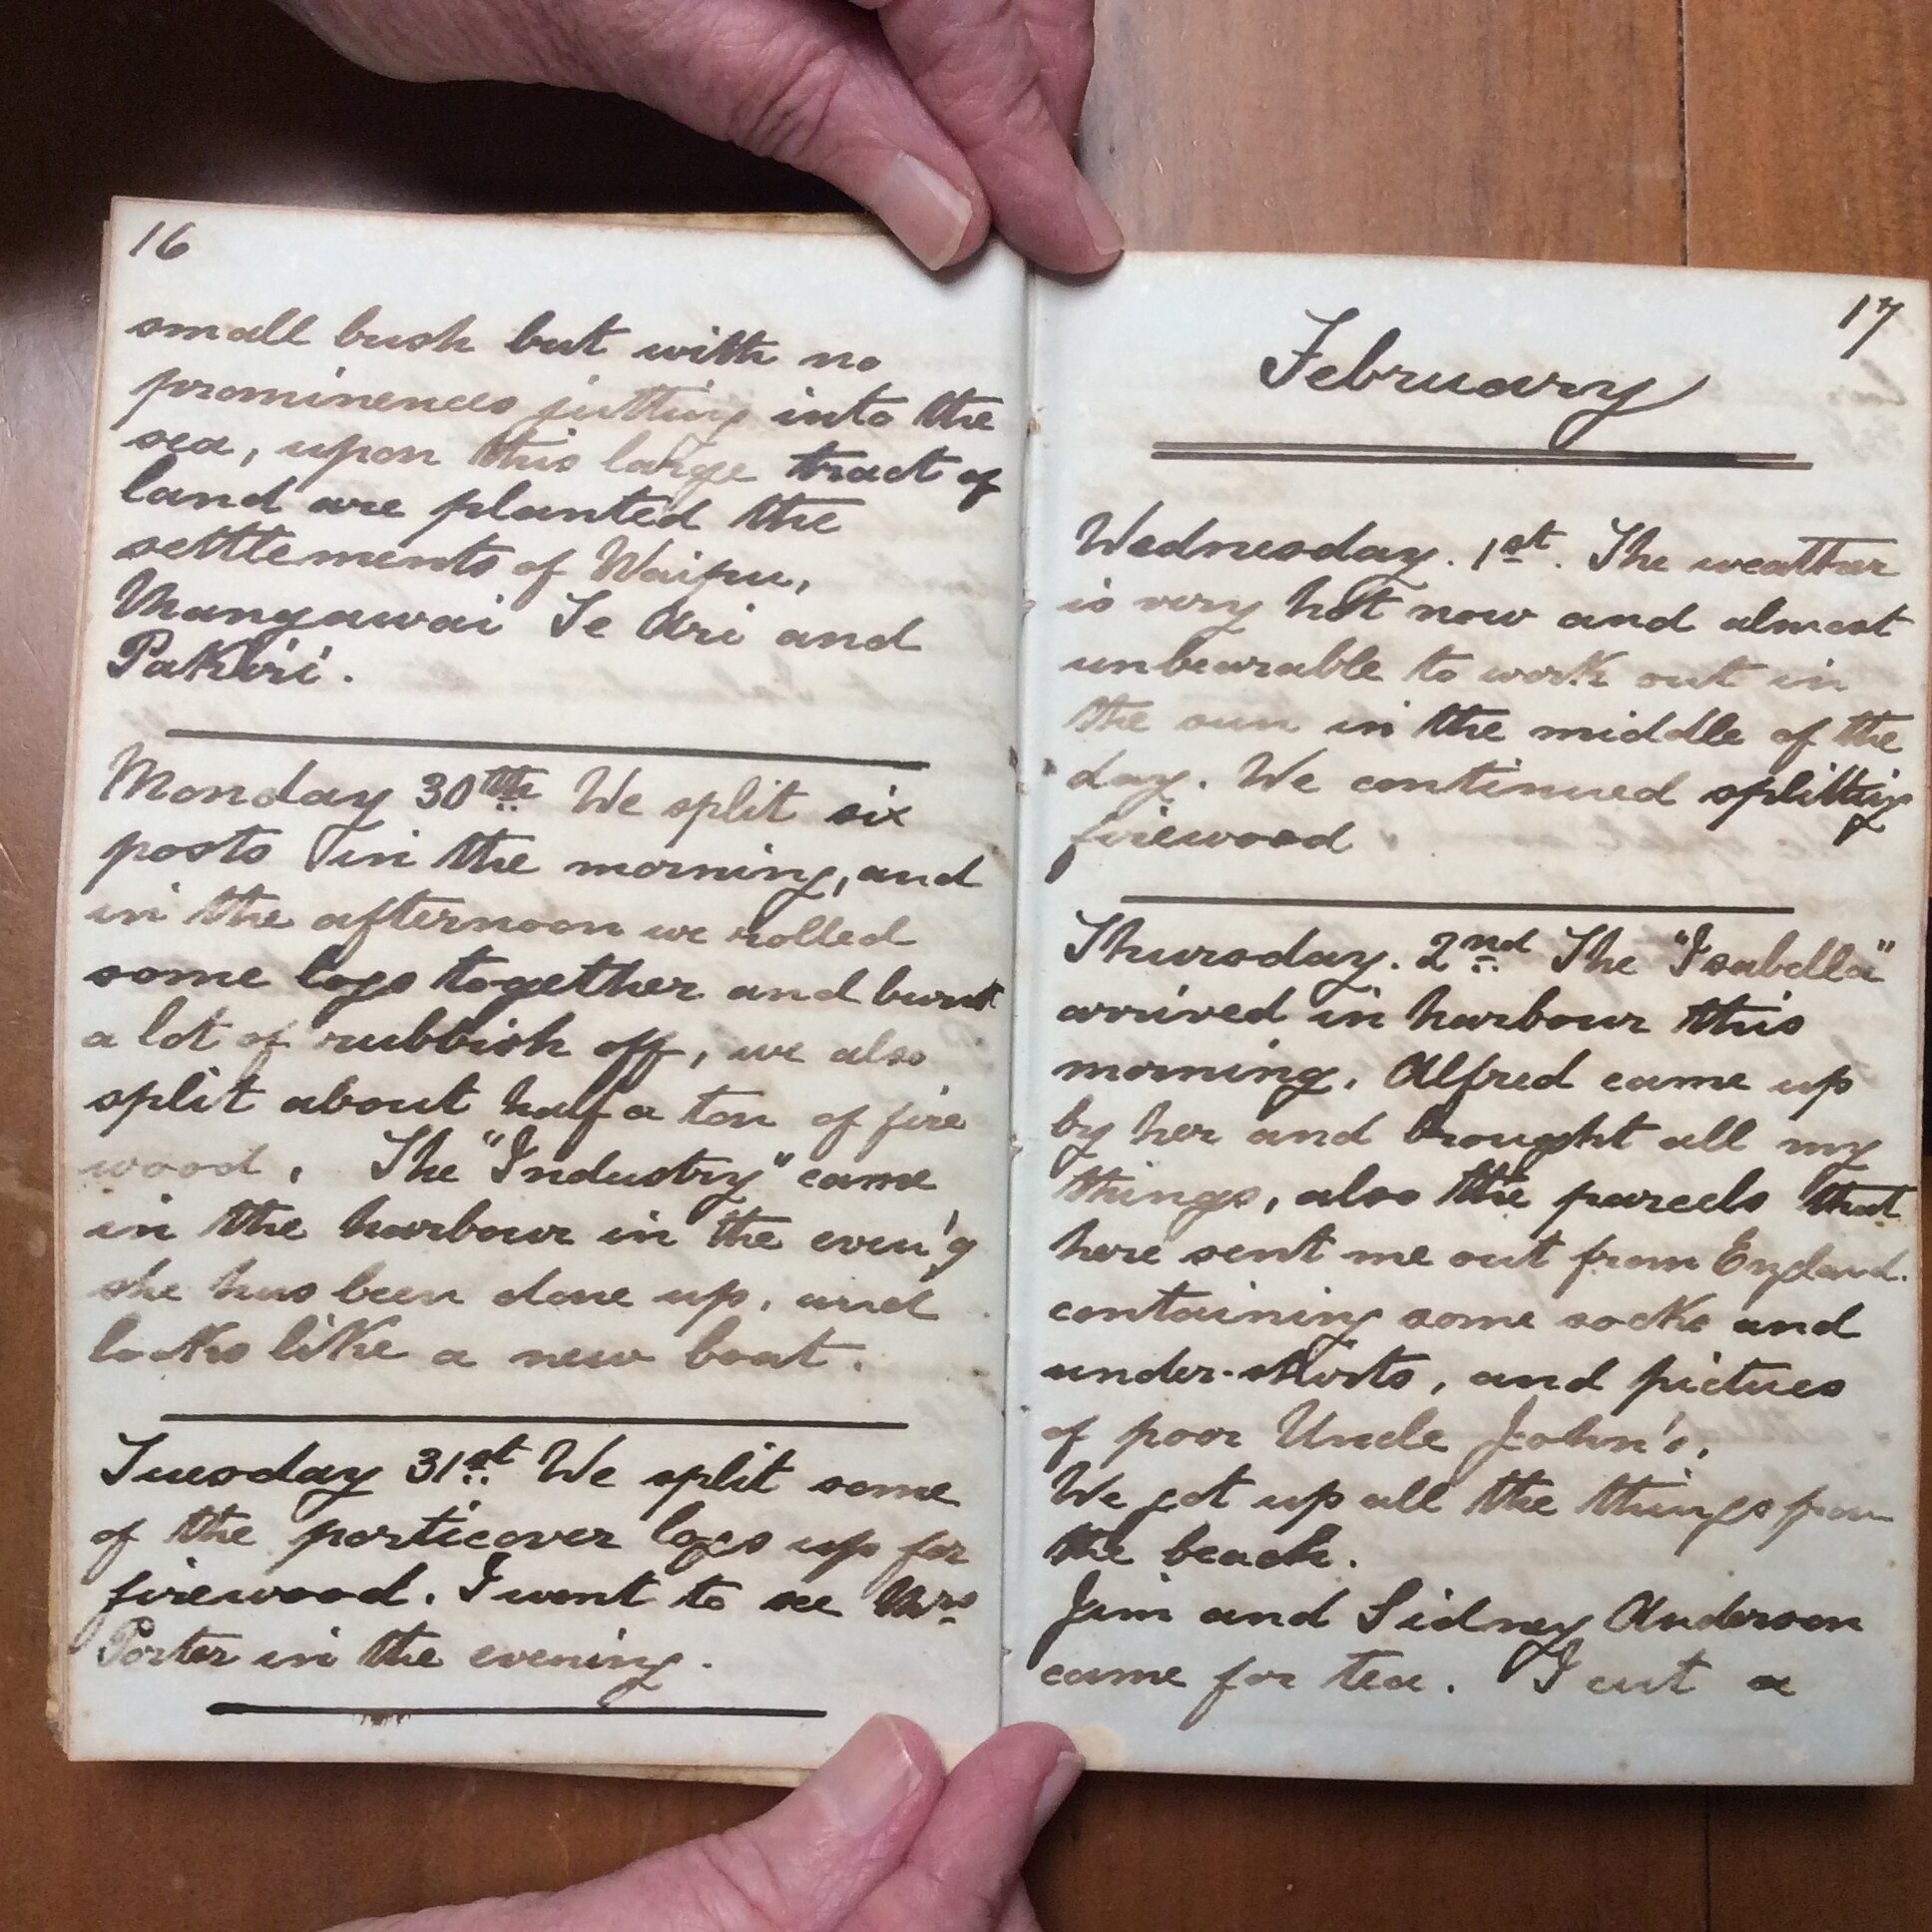 16
small bush but with no
prominences jutting into the
sea, upon this large tract of
land are planted the
settlements of Waipu,
Mangawai Te Ari and
Pakiri.
Monday 30th We split six
posts in the morning, and
in the afternoon we rolled
some logs together and burnt
a lot of rubbish off, we also
split about half a ton of fire
wood. The "Industry" came
in the harbour in the even'g
she has been done up, and
looks like a new boat.
Tuesday 31st We split some
of the logs up for
firewood. I went to see Mrs
Porter in the evening.
17
February
Wednesday. 1st. The weather
is very hot now and almost
unbearable to work out in
the sun in the middle of the
day. We continued splitting
firewood
Thursday. 2nd The "Isabella"
arrived in harbour this
morning. Alfred came up
by her and brought all my
things, also the parcels that
here sent me out from England.
containing some socks and
under-shirts, and pictues
of poor Uncle John's.
We got up all the things from
the beach.
Jim and Sidney Anderson
came for tea. I cut a